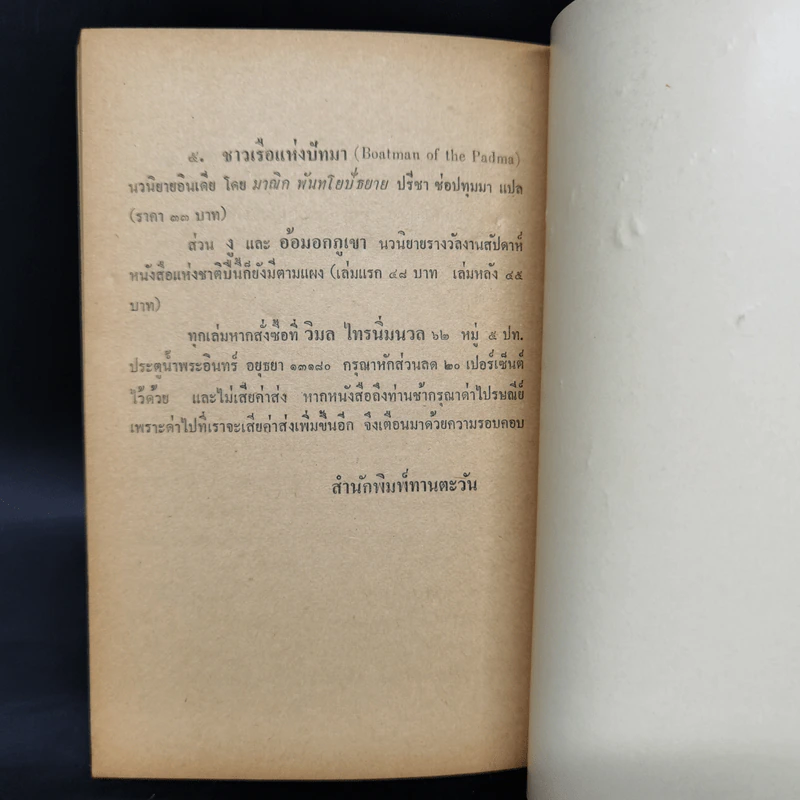 ๕. ชาวเรือแห่งปัทมา (Boatman of the Padma)
นวนิยายอินเดีย โดย มาณิก พันทโยปัธยาย ปรีชา ช่อปทุมมา แปล
(ราคา ๓๓ บาท)
ส่วน งู และ อ้อมอกภูเขา นวนิยายรางวัลงานสัปดาห์
หนังสือแห่งชาติปีนี้ก็ยังมีตามแผง (เล่มแรก ๔๘ บาท เล่มหลัง ๔๕
บาท)
ทุกเล่มหากสั่งซื้อที่ วิมล ไทรนิ่มนวล ๖๒ หมู่ ๕ ปท.
ประตูน้ำพระอินทร์ อยุธยา ๑๓๑๘๐ กรุณาหักส่วนลด ๒๐ เปอร์เซ็นต์
ไว้ด้วย และไม่เสียค่าส่ง หากหนังสือถึงท่านช้ากรุณาด่าไปรษณีย์
เพราะด่าไปที่เราจะเสียค่าส่งเพิ่มขึ้นอีก จึงเตือนมาด้วยความรอบคอบ
สำนักพิมพ์ทานตะวัน